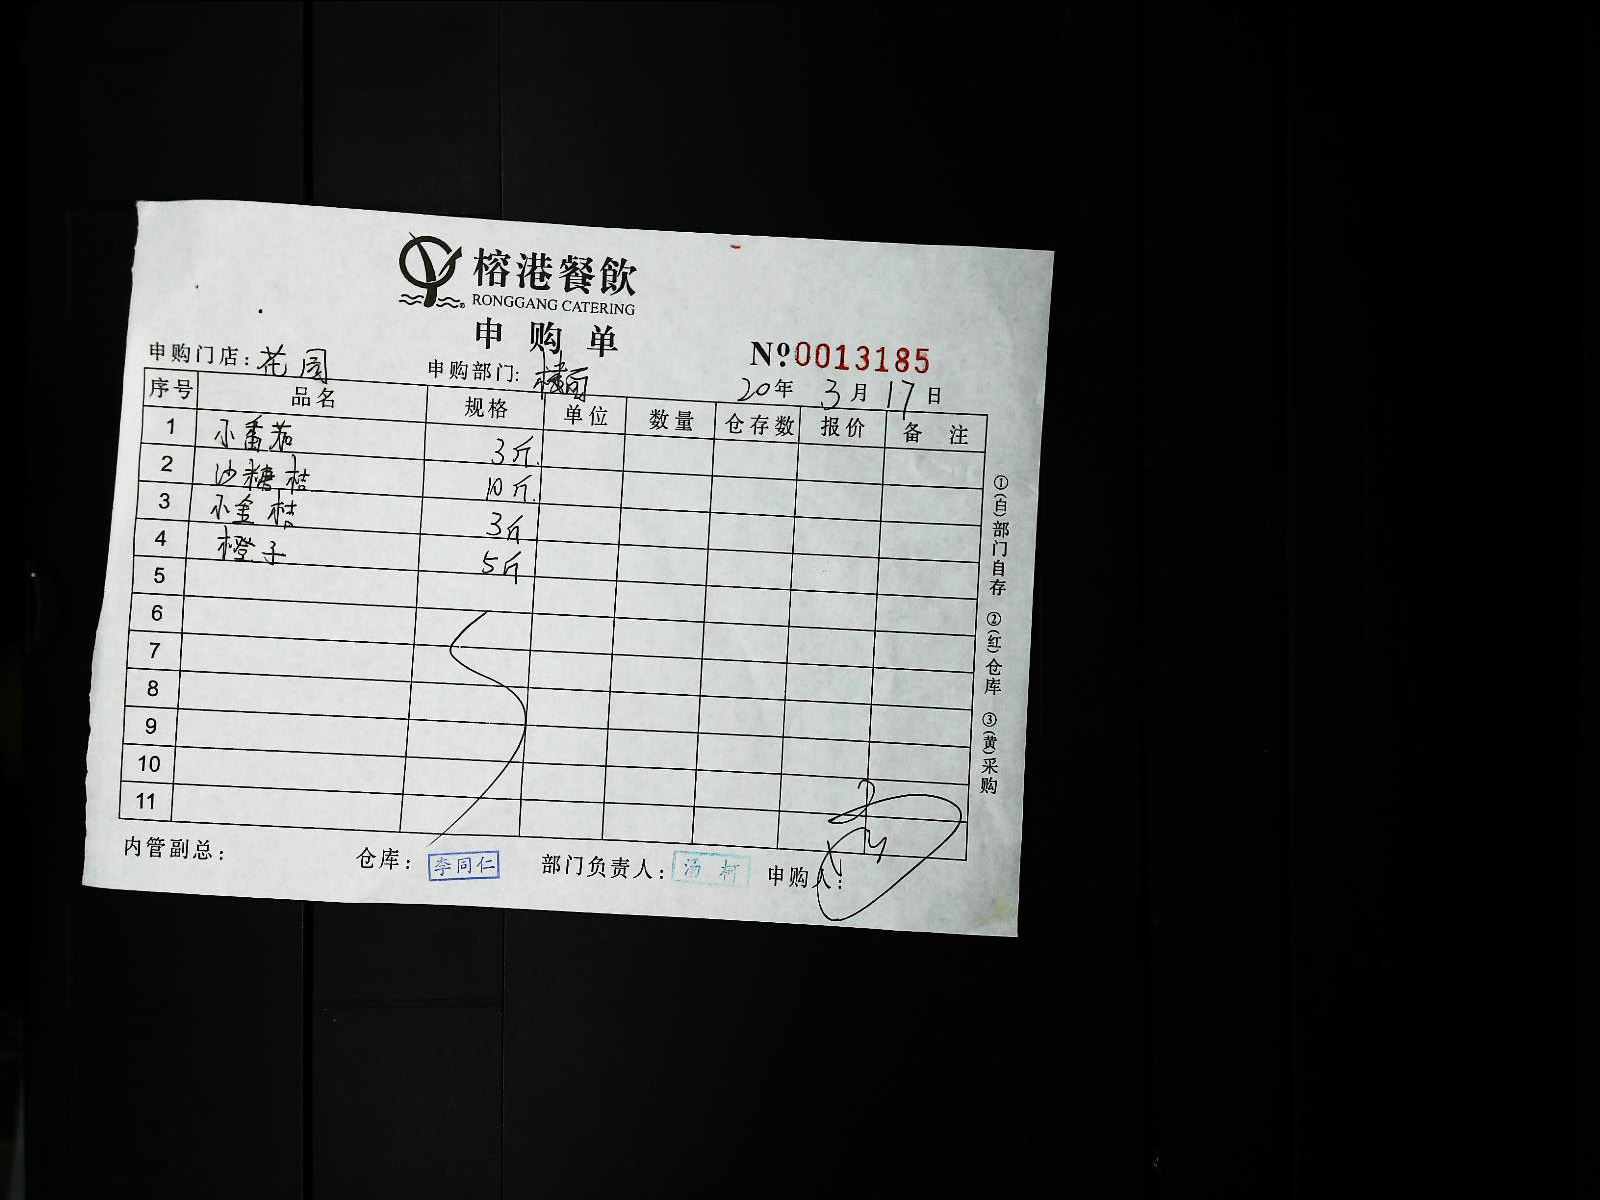 榕港餐飲
RONGGANG CATERING
申购单
№0013185
申购门店：花园 申购部门：楼面 20年 3月 17日
序号 品名 规格 单位 数量 仓存数 报价 备 注
1 小番茄 3斤.
2 沙糖桔 10斤.
3 小金桔 3斤
4 橙子 5斤
5
6
7
8
9
10
11
内管副总： 仓库：李同仁 部门负责人：汤柯 申购人：
①(白)部门自存 ②(红)仓库 ③(黄)采购